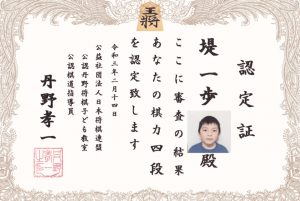 王將
認定証
堤一歩殿
ここに審査の結果
あなたの棋力四段
を認定致します
令和三年二月十四日
公益社団法人日本将棋連盟
公認丹野将棋子ども教室
公認棋道指導員
丹野孝一